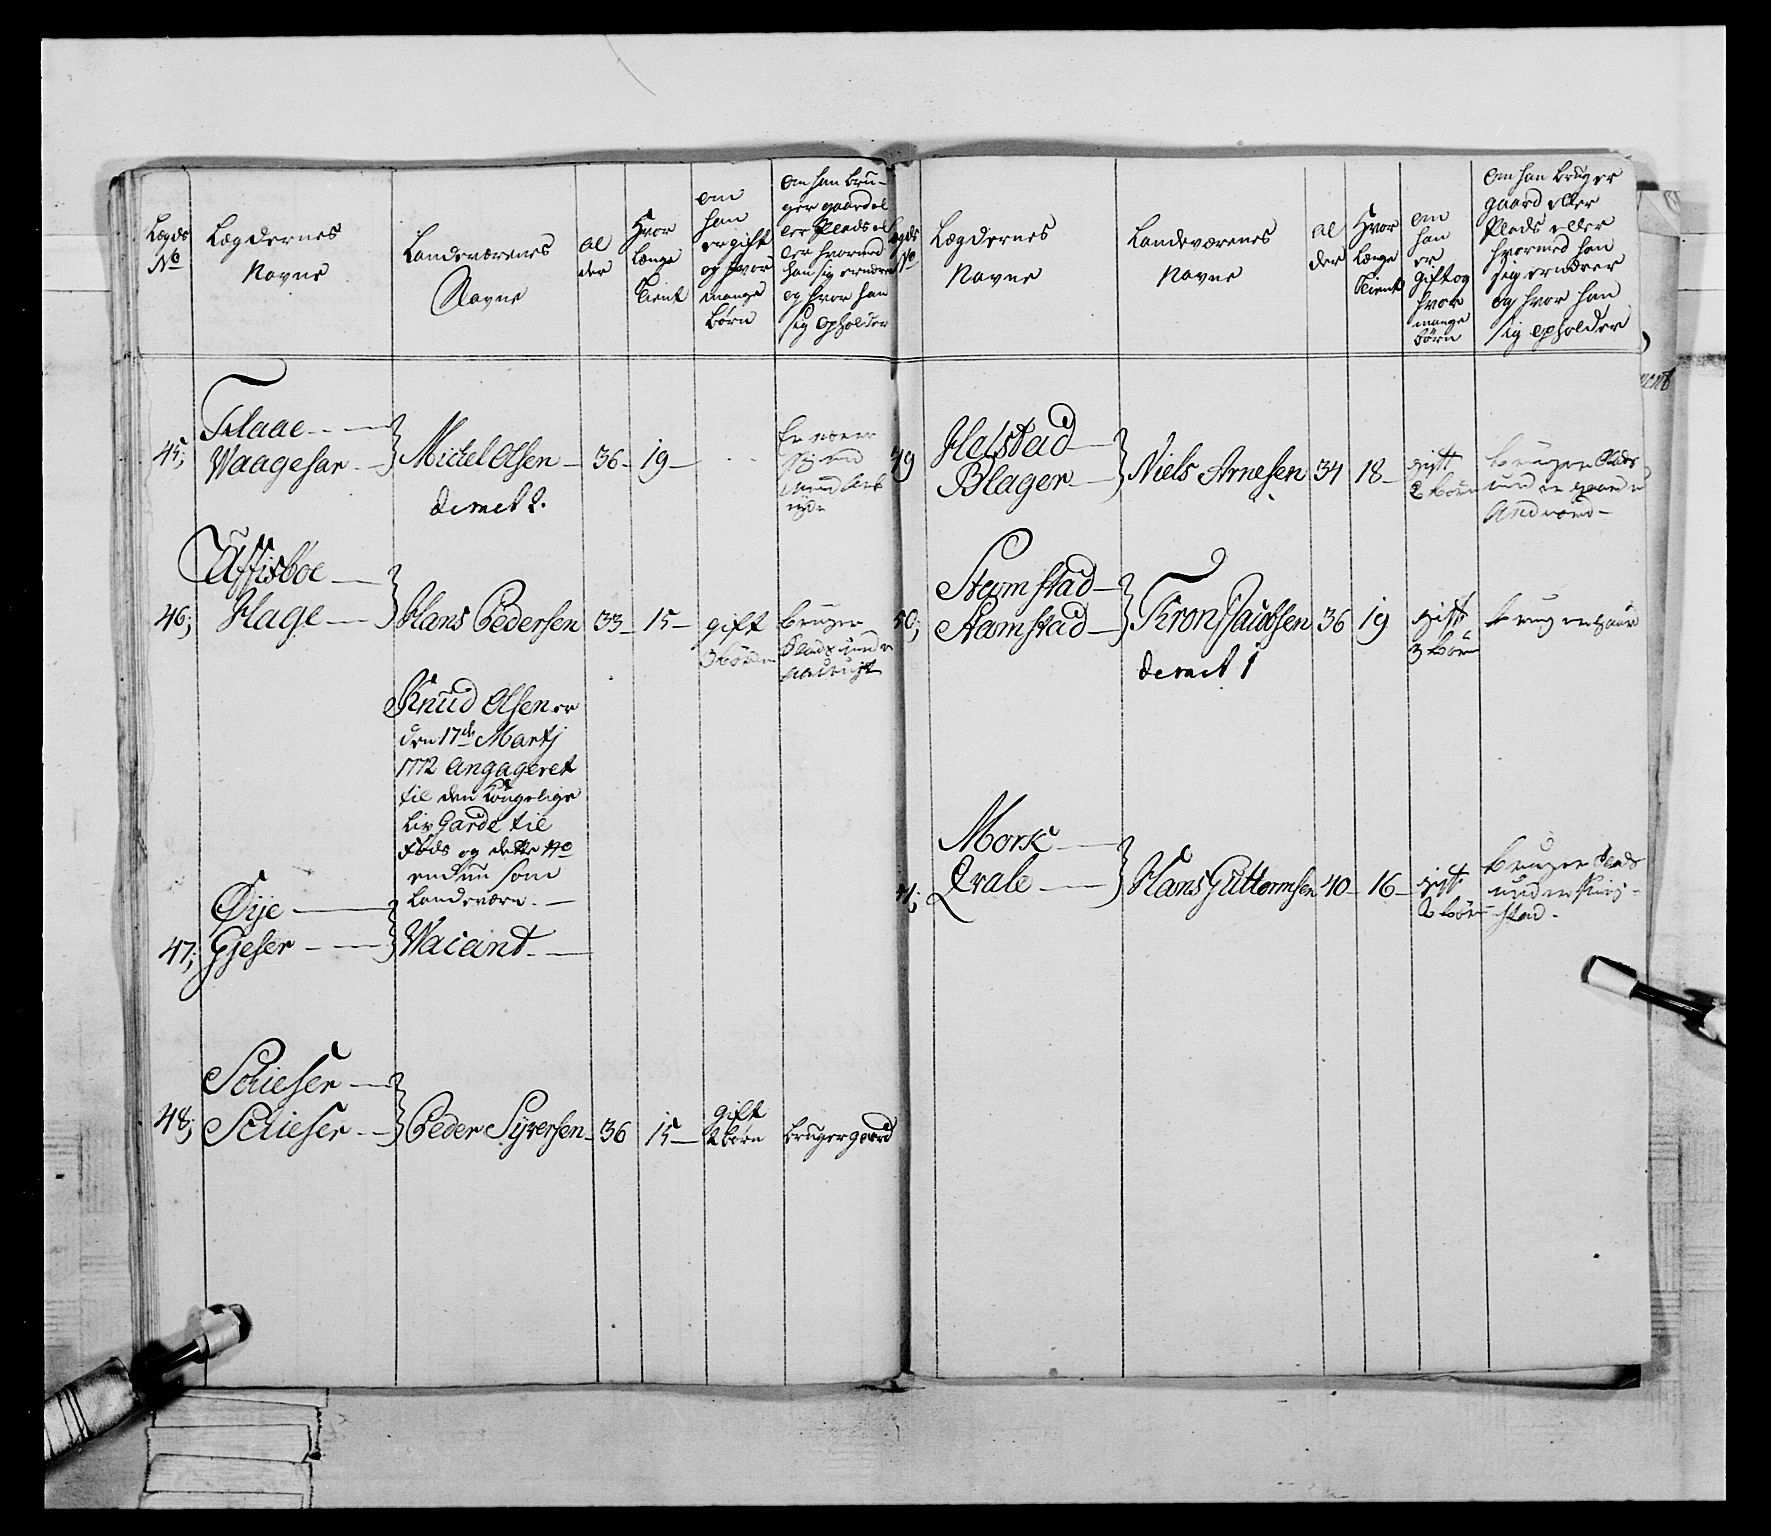 Lægds
No
Lægdernes
Navne
Landeværenes
Navne
al
der
Hvor
længe
tient
om
han
er gift
og hvor
mange
børn
om han bru-
ger gaard el
ler Plads el
ler hvormed
han sig ernærer
og hvor han
sig opholder
Flaae
45; Waagesar Michel Olsen 36 19
demet 2.
Uffisbøe
46; Hage Hans Pedersen 33 15 gift bruger
3 børn Plads under
Knud Olsen er
den 17de Martj
1772 angageret
til den Kongelige
Liv Garde til
Fods og dette No
endnu som
Landeværn.
Øije
47; Gjeser Vacant
Schieser
48; Schieser Peder Syversen 36 15 gift
2 børn bruger gaard
Lægds
No
Lægdernes
Navne
Landeværenes
Navne
al
der
Hvor
længe
tient
om
han
er
gift og
hvor
mange
børn
om han bruger
gaard eller
Plads eller
hvormed han
sig ernærer
og hvor han
sig opholder
Helstad
49 Blager Niels Arnesen 34 18 gift
2 børn bruger Plads
Stamstad
50; Stamstad Tron Jacobsen 36 19 gift
3 børn bruger gaard
demet 1
Mork
51; Qvale Hans Guttormsen 40 16 gift
2 børn bruger Plads
under
stad